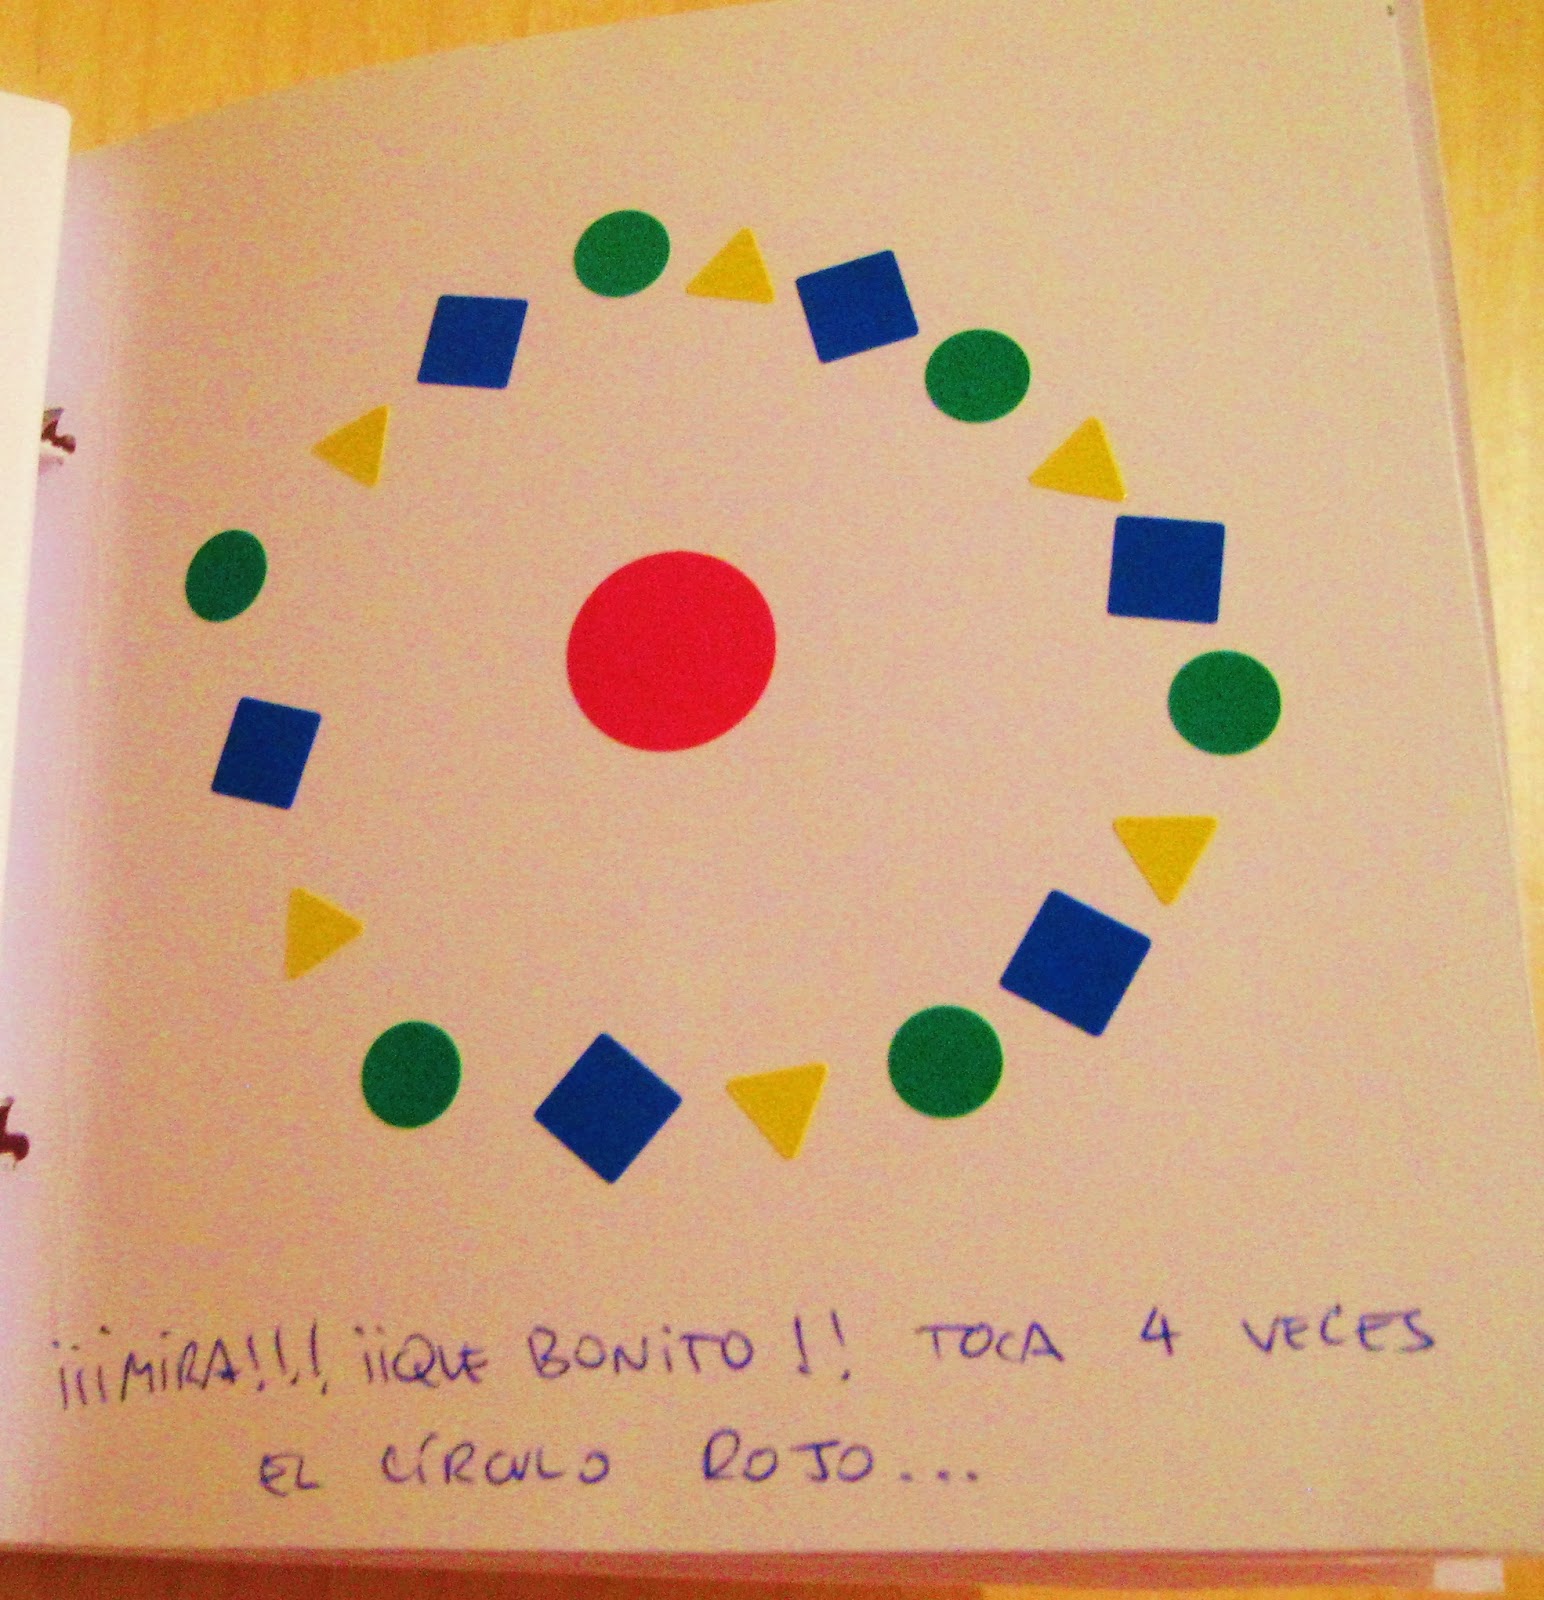 ¡¡¡MIRA!!! ¡¡QUE BONITO!! TOCA 4 VECES
EL CÍRCULO ROJO...